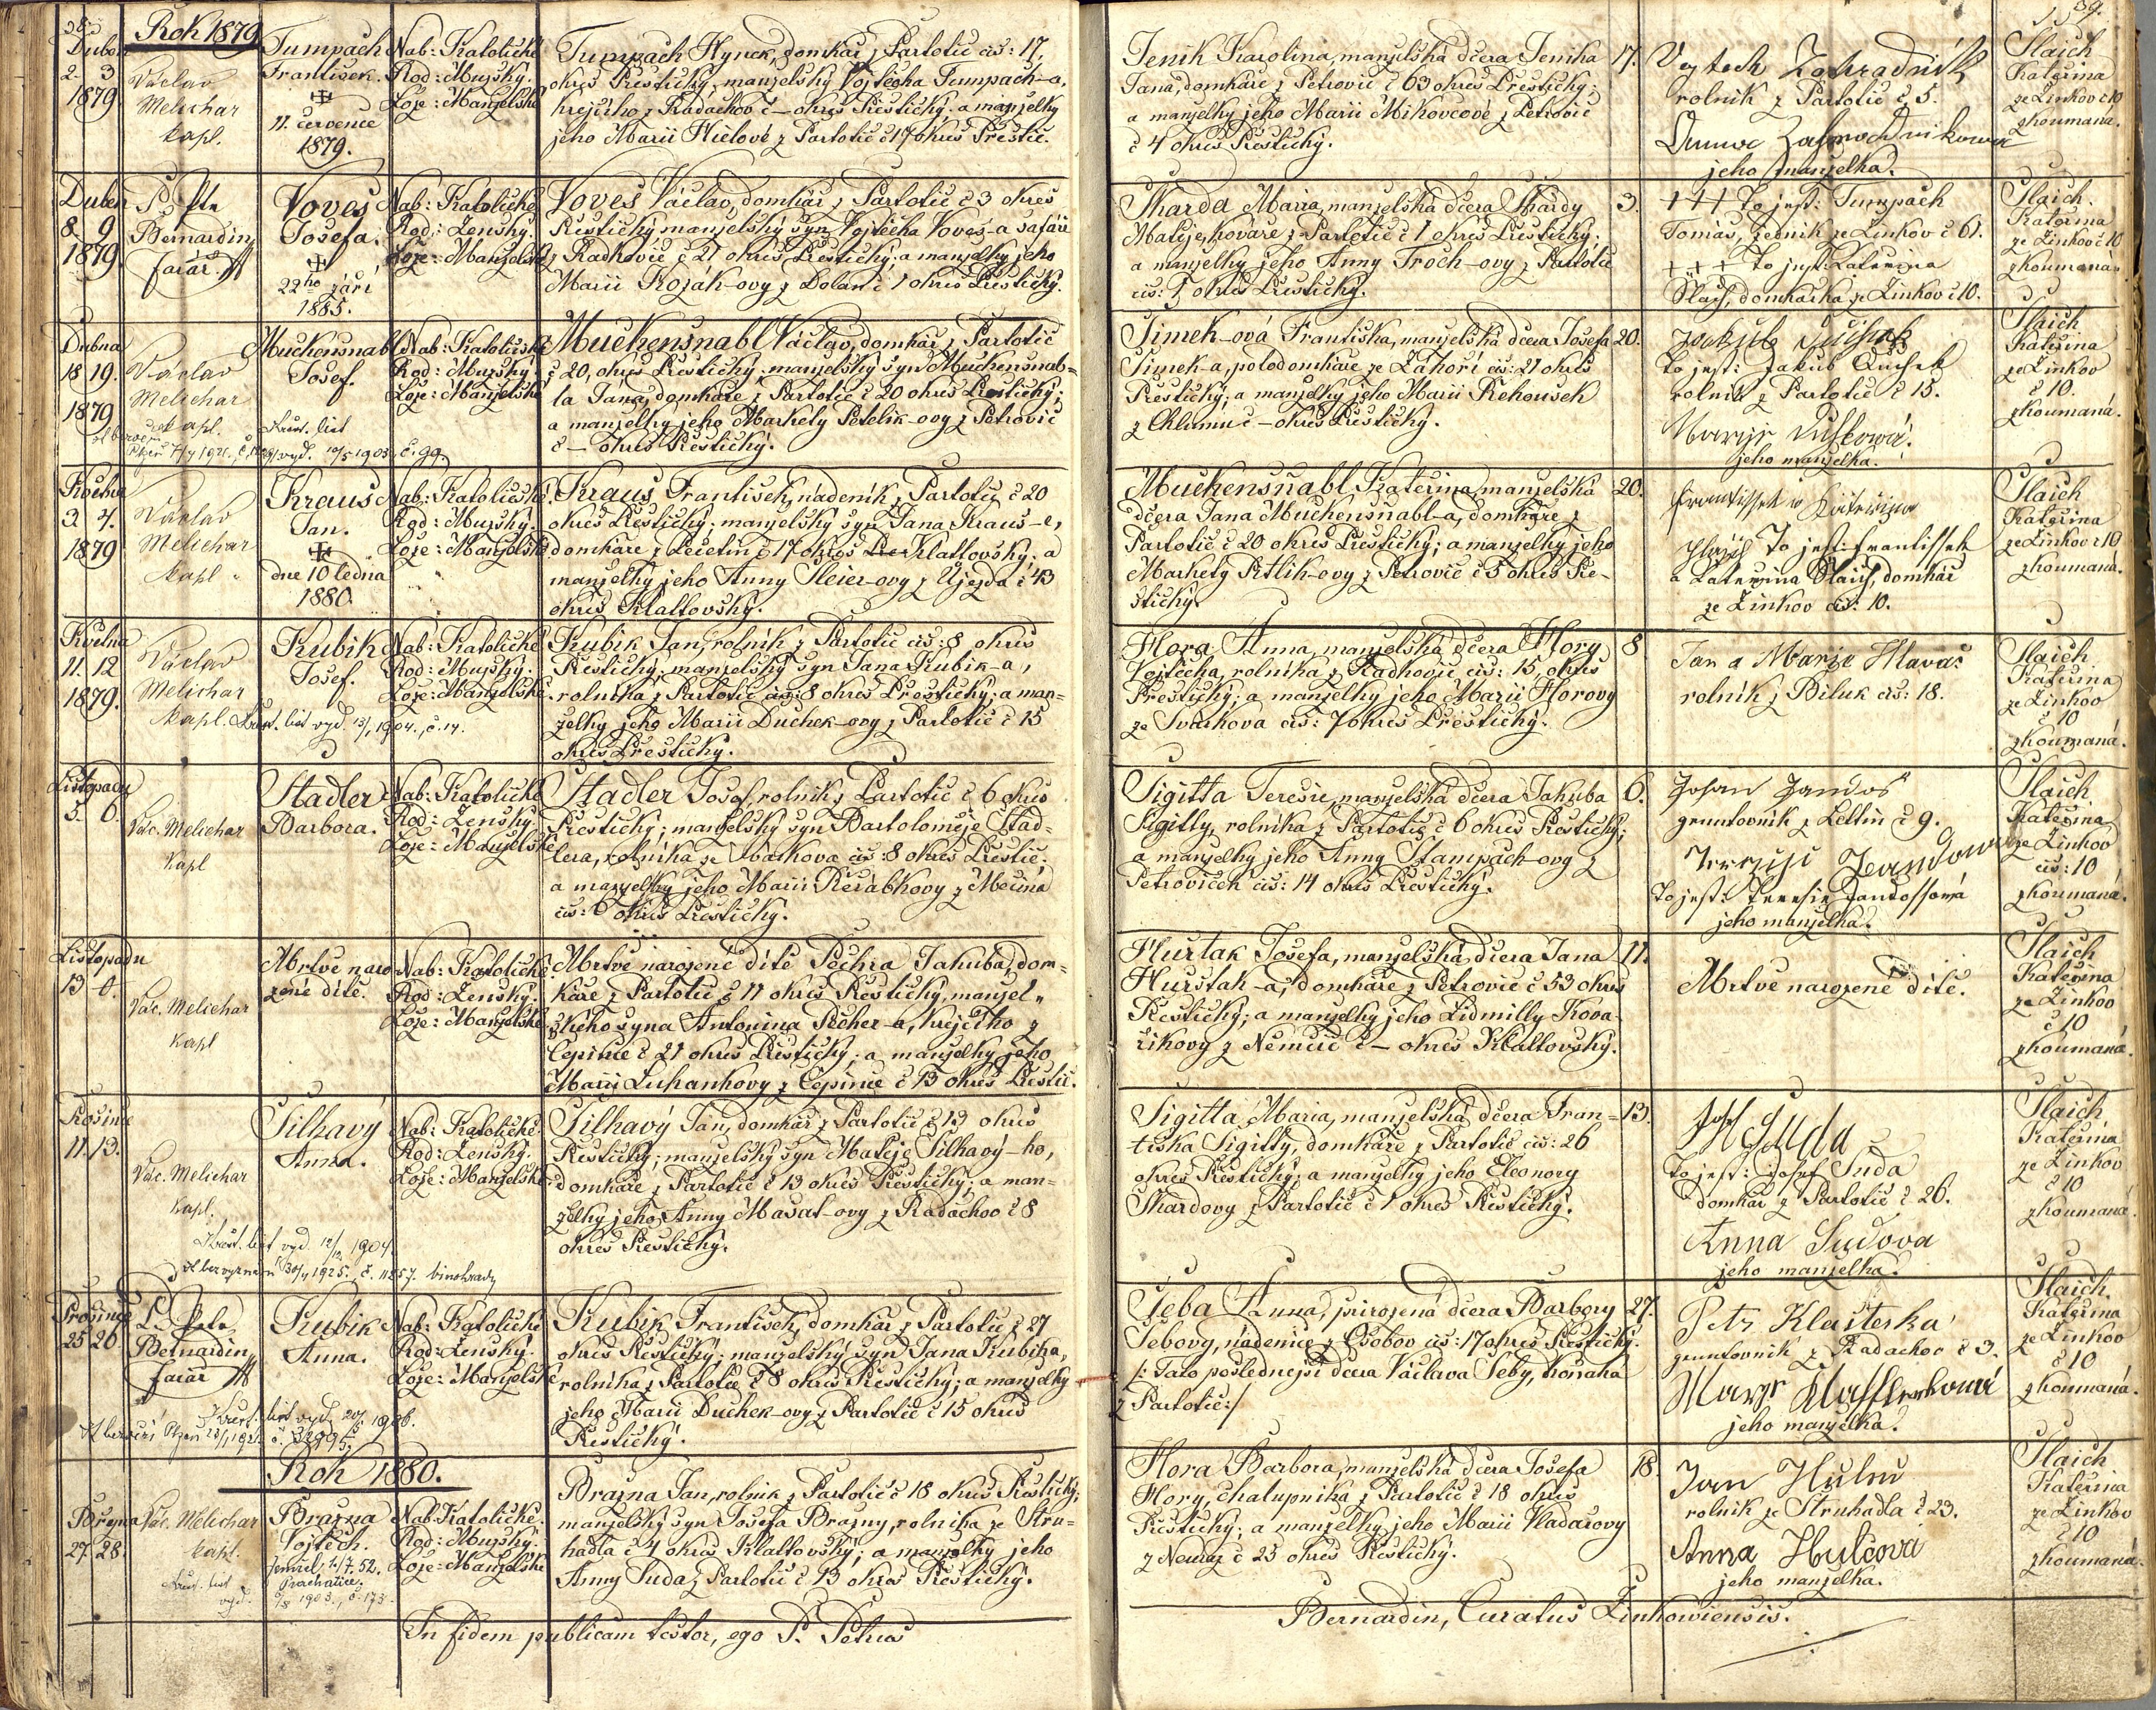 Rok 1879
Duben
2. 3
1879
Václav
Melichar
kapl.
Tumpach
František.
11. července
1879.
Nab: Katolické
Rod: Mužský.
Lože: Manželské
Tumpach Hynek, domkář z Partotic čís: 17.
okres Přestický, manželský Vojtěcha Tumpach-a,
krejčího z Radachov č – okres Přestický; a manželky
jeho Marii Hielové z Partotic č 17 okres Přestic.
Jeník Karolina, manželská dcera Jeníka
Jana, domkáře z Petrovic č 63 okres Přestický;
a manželky jeho Marii Mikovcové z Petrovic
č 4 okres Přestický.
17.
Vojtech Zahradník
rolník z Partotic č 5.
jeho manželka.
Slaich
Kateřina
ze Žinkov č 10
zkoumaná.
Duben
8. 9
1879
P. Petr
Bernardin
farář
Voves
Josefa.
22ho září
1885.
Nab: Katolické
Rod: Ženský.
Lože: Manželské
Voves Václav, domkář z Partotic č 3 okres
Přestický manželský syn Vojtěcha Voves-a šafáře
z Radkovic č 21 okres Přestický; a manželky jeho
Marii Koják-ovy z Dolan č 1 okres Přestický.
Skarda Maria, manželská dcera Skardy
Matěje, kováře z Partotic č 1 okres Přestický;
a manželky jeho Anny Troch-ovy z Partotic
čís: 1 okres Přestický.
3.
+++ to jest: Tumpach
Tomáš, zedník ze Žinkov č 61.
+++ to jest: Kateřina
Slaich, domkářka ze Žinkov č 10.
Slaich.
Kateřina
ze Žinkov č 10
zkoumaná.
Dubna
18 19.
1879
Václav
Melichar
kapl.
Muckensnabl
Josef.
Křest. list
vyd. 10/5 1903, č. 99.
Nab: Katolické
Rod: Mužský.
Lože: Manželské
Muckensnabl Václav, domkář z Partotic
č 20, okres Přestický; manželský syn Muckensnab-
la Jana, domkáře z Partotic č 20 okres Přestický;
a manželky jeho Markety Petelik-ovy z Petrovic
č – okres Přestický.
Šimek-ová Františka, manželská dcera Josefa
Šimek-a, polodomkáře ze Záhoří čís: 21 okres
Přestický; a manželky jeho Marii Řehousek
z Chlumu č – okres Přestický.
20.
to jest: Jakub Dušek
rolník z Partotic č 15.
jeho manželka.
Slaich
Kateřina
ze Žinkov
č 10.
zkoumaná.
Května
3 4.
1879
Václav
Melichar
kapl.
Kraus
Jan.
dne 10 ledna
1880.
Nab: Katolické.
Rod: Mužský.
Lože: Manželské
Kraus František, nádeník z Partotic č 20
okres Přestický; manželský syn Jana Kraus-e,
domkáře z Ječetín č 17 okres Klattovský; a
manželky jeho Anny Sleier-ovy z Újezda č 43
okres Klattovský.
Muckensnabl Kateřina manželská
dcera Jana Muckensnabl-a, domkáře z
Partotic č 20 okres Přestický; a manželky jeho
Markety Petlik-ovy z Petrovic č 5 okres Pře-
stický.
20.
to jest: Frantissek
a Kateřina Slaich, domkář
ze Žinkov čís: 10.
Slaich
Kateřina
ze Žinkov č 10
zkoumaná.
Května
11. 12
1879.
Václav
Melichar
kapl.
Kubík
Josef.
Křest. list vyd. 13/1 1904., č. 14.
Nab: Katolické
Rod: Mužský.
Lože: Manželské.
Kubík Jan, rolník z Partotic čís: 8 okres
Přestický; manželský syn Jana Kubík-a,
rolníka z Partotic čís: 8 okres Přestický; a man-
želky jeho Marii Duchek-ovy z Partotic č 15
okres Přestický.
Hora Anna, manželská dcera Hory
Vojtěcha, rolníka z Radkovic čís: 15, okres
Přestický; a manželky jeho Marii Horovy
ze Svárkova čís: 7 okres Přestický.
8
Jan a Marie Hlaváč
rolník z Biluk čís: 18.
Slaich
Kateřina
ze Žinkov
č 10
zkoumaná.
Listopadu
5. 6.
Vác. Melichar
kapl
Stadler
Barbora.
Nab: Katolické
Rod: Ženský.
Lože: Manželské
Stadler Josef, rolník z Partotic č 6 okres
Přestický; manželský syn Bartoloměje Stad-
lera, rolníka ze Svárkova čís: 8 okres Přestic.
a manželky jeho Marii Řeřábkovy z Mečína
čís: 6 okres Přestický.
Sigitta Teresie, manželská dcera Jakuba
Sigitty, rolníka z Partotic č 6 okres Přestický;
a manželky jeho Anny Stampach-ovy z
Petroviček čís: 14 okres Přestický.
6.
Johan Jandoš
gruntovník z Lettin č 9.
to jest: Teresie Jandossová
jeho manželka.
Slaich
Kateřina
ze Žinkov
čís: 10
zkoumaná.
Listopadu
13 – 0.
Vác. Melichar
kapl
Mrtvě naro-
zené dítě.
Nab: Katolické.
Rod: Ženský.
Lože: Manželské
Mrtvě narozené dítě Pechra Jakuba, dom-
káře z Partotic č 11 okres Přestický, manžel-
ského syna Antonína Pecher-a, krejčího z
Čepinec č 21 okres Přestický; a manželky jeho
Marii Luhankovy z Čepinec č 13 okres Přestic.
Hurštak Josefa, manželská dcera Jana
Hurštak-a, domkáře z Petrovic č 53 okres
Přestický; a manželky jeho Lidmilly Kova-
říkovy z Němčic č – okres Klattovský.
11.
Mrtvě narozené dítě.
Slaich
Kateřina
ze Žinkov
č 10
zkoumaná.
Prosince
11. 13.
Vác. Melichar
kapl.
Šilhavý
Anna.
Křest. list vyd. 12/12 1904.
Nab: Katolické.
Rod: Ženský.
Lože: Manželské
Šilhavý Jan, domkář z Partotic č 13 okres
Přestický; manželský syn Matěje Šilhavý-ho,
domkáře z Partotic č 13 okres Přestický; a man-
želky jeho Anny Mašat-ovy z Radachov č 8
okres Přestický.
Sigitta Maria, manželská dcera Fran-
tiška Sigitty, domkáře z Partotic čís: 26
okres Přestický; a manželky jeho Eleonory
Skardovy z Partotic č 1 okres Přestický.
13.
to jest: Josef Suda
domkář z Partotic č 26.
Anna Sudova
jeho manželka.
Slaich
Kateřina
ze Žinkov
č 10
zkoumaná
Prosince
25 26
P. Petr
Bernardin
farář
Kubík
Anna.
Nab: Katolické
Rod: Ženský.
Lože: Manželské
Kubík František, domkář z Partotic č 27
okres Přestický; manželský syn Jana Kubíka,
rolníka z Partotic č 8 okres Přestický; a manželky
jeho Marii Duchek-ovy z Partotic č 15 okres
Přestický.
Šeba Anna, přirozená dcera Barbory
Šebovy, nádenice z Osobov čís: 17 okres Přestický.
/: Tato poslednejší dcera Václava Šeby, koňaka
z Partotic :/
27.
Petr Klasterka
gruntovník z Radachov č 3.
jeho manželka.
Slaich.
Kateřina
ze Žinkov
č 10
zkoumaná.
Rok 1880.
Března
27. 28.
Vác. Melichar
kapl.
Brazna
Vojtěch.
Nab: Katolické.
Rod: Mužský.
Lože: Manželské
Brazna Jan, rolník z Partotic č 18 okres Přestický;
manželský syn Josefa Brazny, rolníka ze Stru-
hadla č 4 okres Klattovský; a manželky jeho
Anny Suda z Partotic č 13 okres Přestický.
Hora Barbora, manželská dcera Josefa
Hory, chalupníka z Partotic č 18 okres
Přestický; a manželky jeho Marii Vladařovy
z Neuraz č 25 okres Přestický.
18.
rolník ze Struhadla č 23.
Anna Hulcova
jeho manželka.
Slaich
Kateřina
ze Žinkov
č 10
zkoumaná
In fidem publicam testor, ego P. Petrus
Bernardin, Curatus Žinkowiensis.